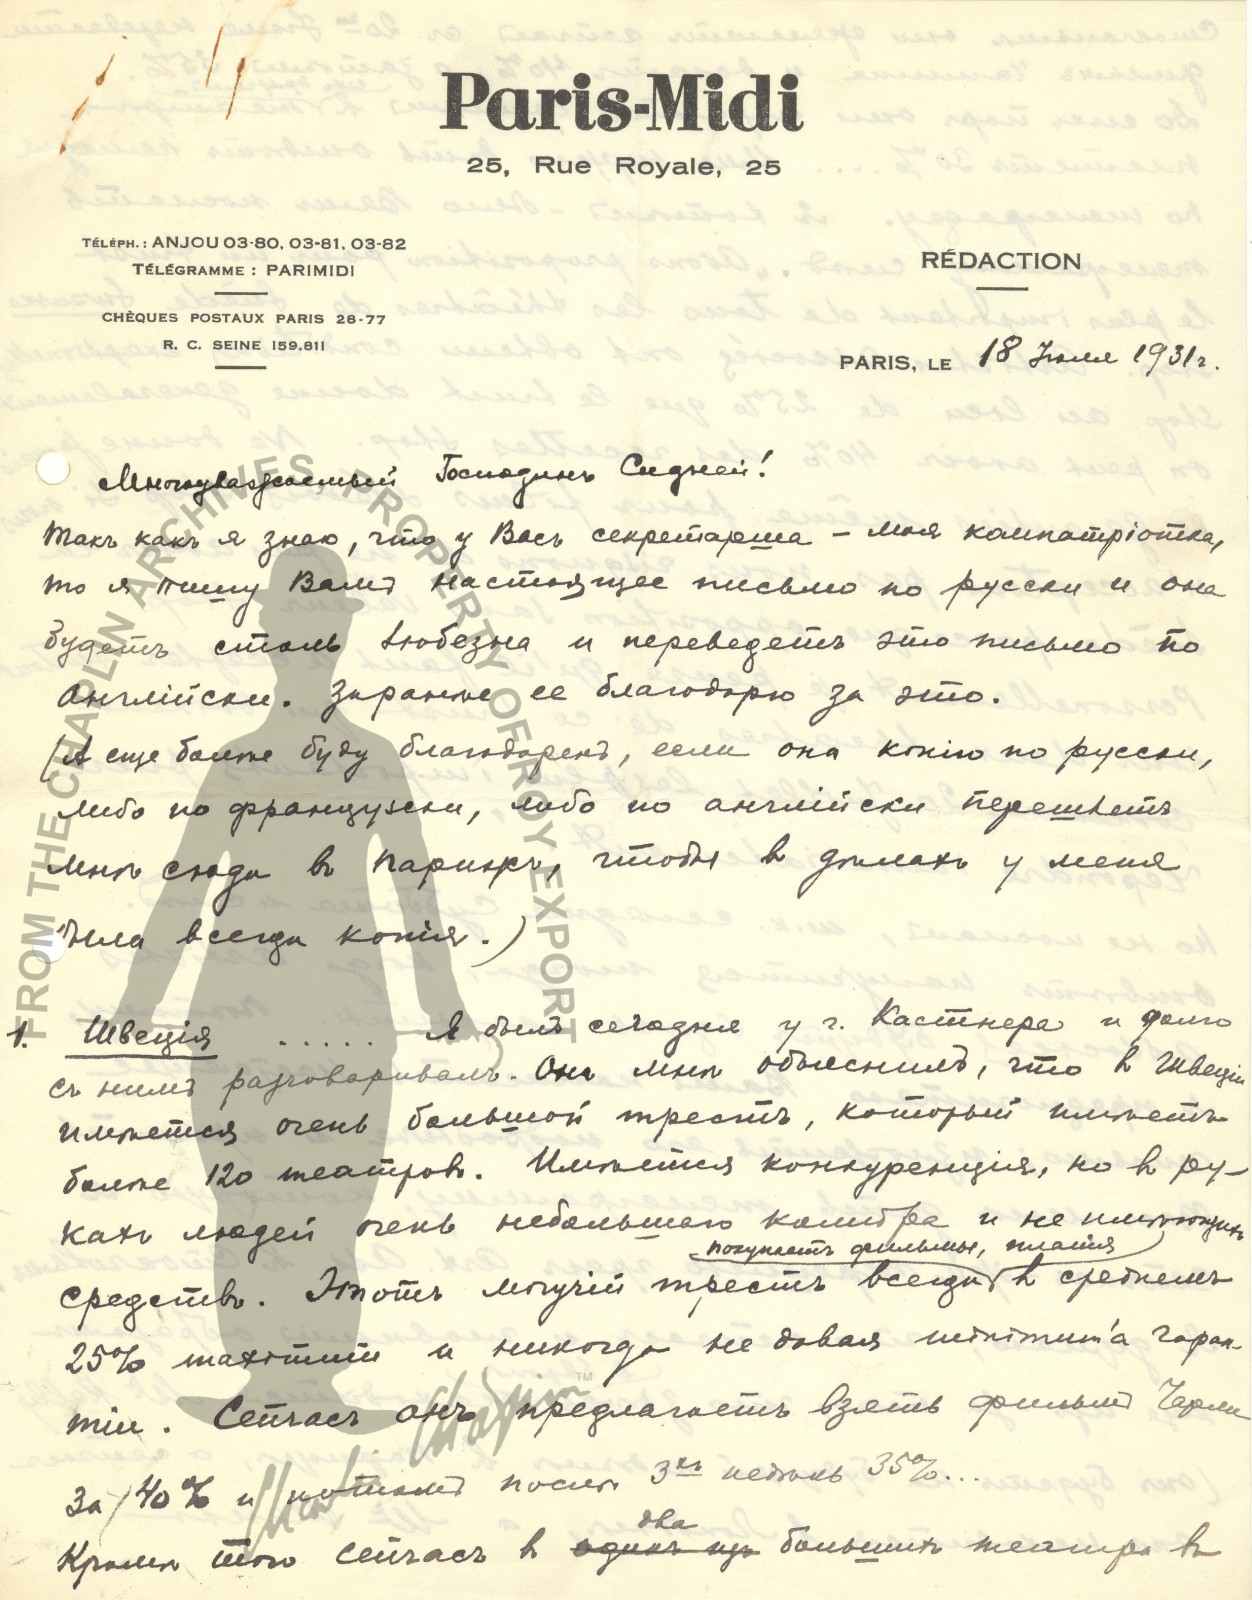 Paris-Midi
25, Rue Royale, 25
TÉLÉPH. : ANJOU 03-80, 03-81, 03-82
TÉLÉGRAMME : PARIMIDI
CHÈQUES POSTAUX PARIS 28-77
R. C. SEINE 159.811
RÉDACTION
PARIS, LE 18 Июля 1931 г.
Многоуважаемый Господинъ Сидней!
Такъ какъ я знаю, что у Васъ секретарша – моя компатріотка,
то я пишу Вамъ настоящее письмо по русски и она
будетъ столь любезна и переведетъ это письмо по
Англійски. Заранѣе ее благодарю за это.
(А еще болѣе буду благодаренъ, если она копію по русски,
либо по французски, либо по англійски перешлетъ
мнѣ сюда въ Парижъ, чтобы въ дѣлахъ у меня
была всегда копія.)
1. Швеція ..... Я былъ сегодня у г. Кастнера и долго
съ нимъ разговаривалъ. Онъ мнѣ объяснилъ, что въ Швеціи
имѣется очень большой трестъ, который имѣетъ
болѣе 120 театровъ. Имѣется конкуренція, но въ ру-
кахъ людей очень небольшаго калибра и не имѣющихъ
покупаетъ фильмы, платя
средствъ. Этотъ могучій трестъ всегда въ среднемъ
25% maximum и никогда не давая minimum'а гаран-
тіи. Сейчасъ онъ предлагаетъ взять фильмъ Чарли
за 40% и потомъ послѣ 3хъ недѣль 35%...
два
Кромѣ того сейчасъ въ одинъ изъ большихъ театра въ
FROM THE CHAPLIN ARCHIVES, PROPERTY OF ROY EXPORT
Charlie Chaplin TM